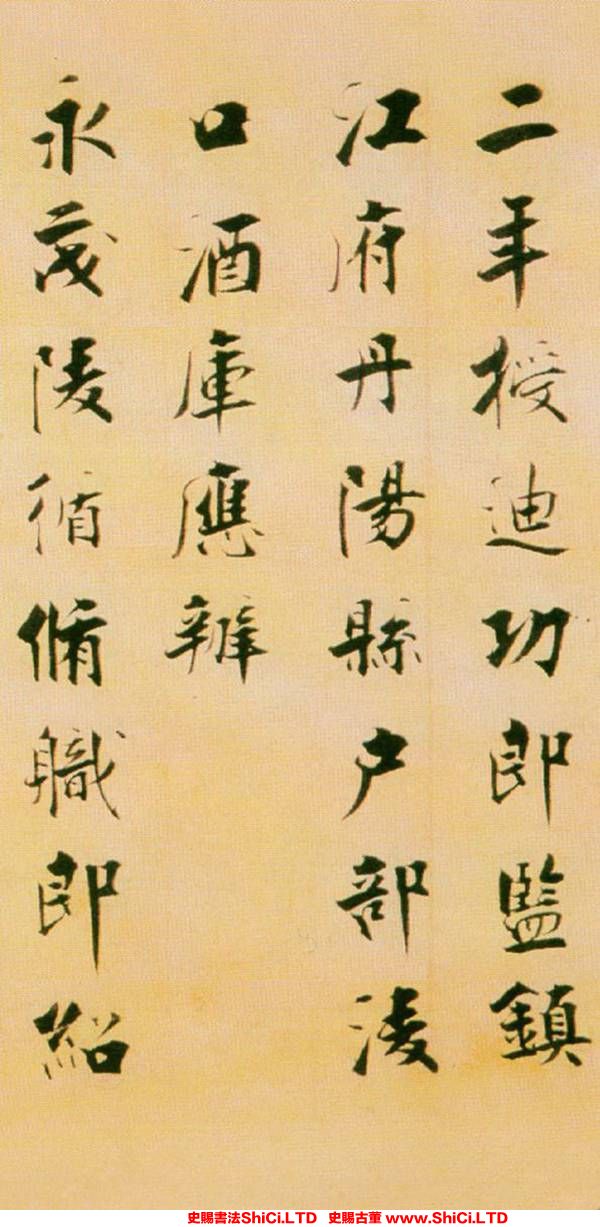 二年授迪功郎監鎮
江府丹陽縣户部淩
口酒庫應辦
永茂陵循脩職郎紹
史賜書法ShiCi.LTD 史賜古董 www.ShiCi.LTD